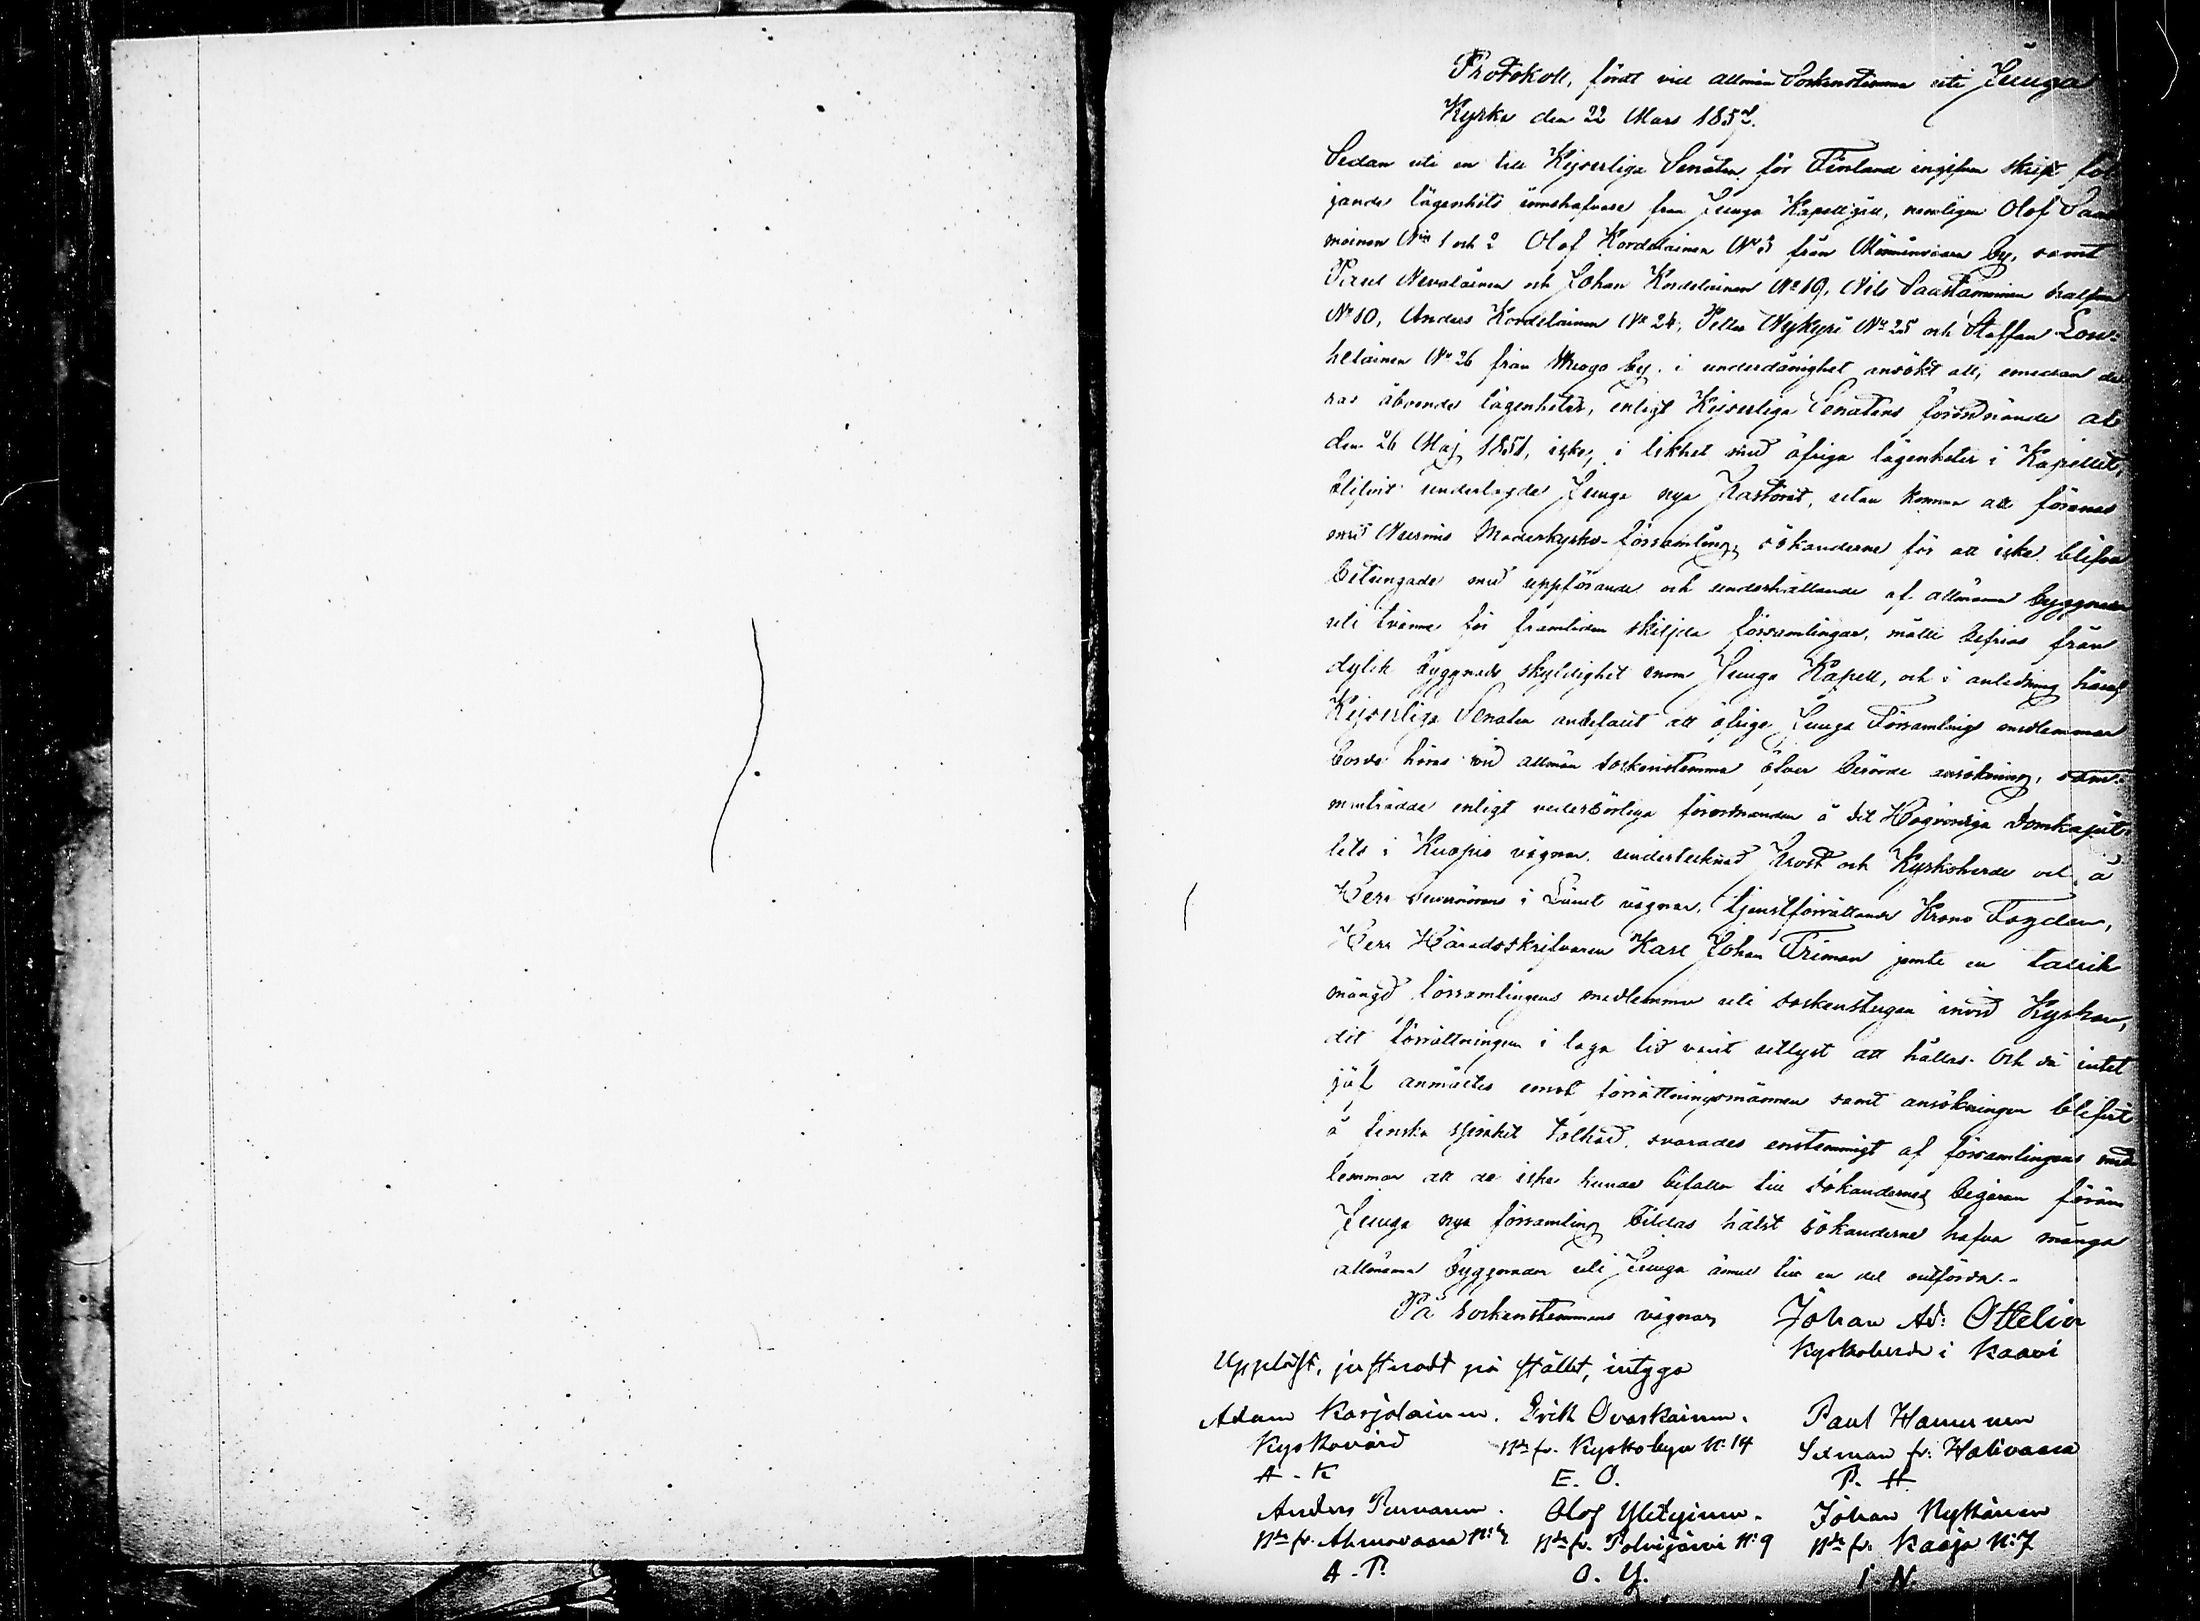 Protokoll, fördt vid allmän Sockenstemma uti Juuga
Kyrka den 22 Mars 1857.
Sedan uti en till Kejserliga Senaten för Finland ingifven skrift föl
jande lägenhets innehafvare från Juuga Kapellgäll, nemligen Olof Saas
moinen N:ris 1 och 2 Olof Kordelainen N:o 3 från by, samt
Paul Nevalainen och Johan Kordelainen N:o 19, Nils Saastamoinen halfva
N:o 10, Anders Kordelainen N:o 24, Petter Nykyri N:o 25 och Staffan Lou-
helainen N:o 26 från by, i underdånighet ansökt att, emedan de
ras åboende lägenheter, enligt Kejserliga Senatens förordnande af
den 26 Maj 1851, icke, i likhet med öfriga lägenheter i Kapellet,
blifvit underlagde Juuga nya Pastorat, utan komma att förenas
med Nurmis Moderkyrko-församling, sökanderne för att icke blifva
betungade med uppförande och underhållande af allmänna byggnader
uti tvänne för framtiden skiljda församlingar, måtte befrias från
dylik byggnads skyldighet inom Juuga Kapell, och i anledning häraf
Kejserliga Senaten anbefallt att öfrige Juuga Församlings medlemmar
borde höras vid allmän sockenstemma öfver berörde ansökning, sam-
manträdde enligt vederbörliga förordnanden å det Högvördiga Domkapit-
lets i Kuopio vägnar, undertecknad Prost och Kyrkoherde och å
Herr Guvernörens i Länet vägnar, tjenstförrättande Krono Fogden,
Herr Häradsskrifvaren Karl Johan Friman jemte en talrik
mängd församlingens medlemmar uti sockenstugan invid Kyrkan,
dit förrättningen i laga tid varit utlyst att hållas. Och då intet
jäf anmältes emot förrättningsmännen samt ansökningen blifvit
å finska språket tolkad, svarades enstemmigt af församlingens med
lemmar att de icke kunde bifalla till sökandernes begäran förän
Juuga nya församling bildas hälst sökanderne hafva många
allmänna byggnader uti Juuga ännu till en del outförda.-
På sockenstemmans vägnar, Johan Ad: Ottelin
Kyrkoherde i Kaavi
Uppläst, justeradt på stället, intyga
Adam Karjalainen. Erik Ovaskainen. Paul Hamunen
Kyrkovärd B:de fr. Kyrkobyn N:14 Sexman fr. Halivaara
A. K E. O. P. H
Anders Purvanen. Olof Yletyinen. Johan Nykänen
B:de fr. Ahmovaara N:o B:de fr. Polvijärvi N:9 B:de fr. Kaaja N:7
A. P. O. Y. I N.